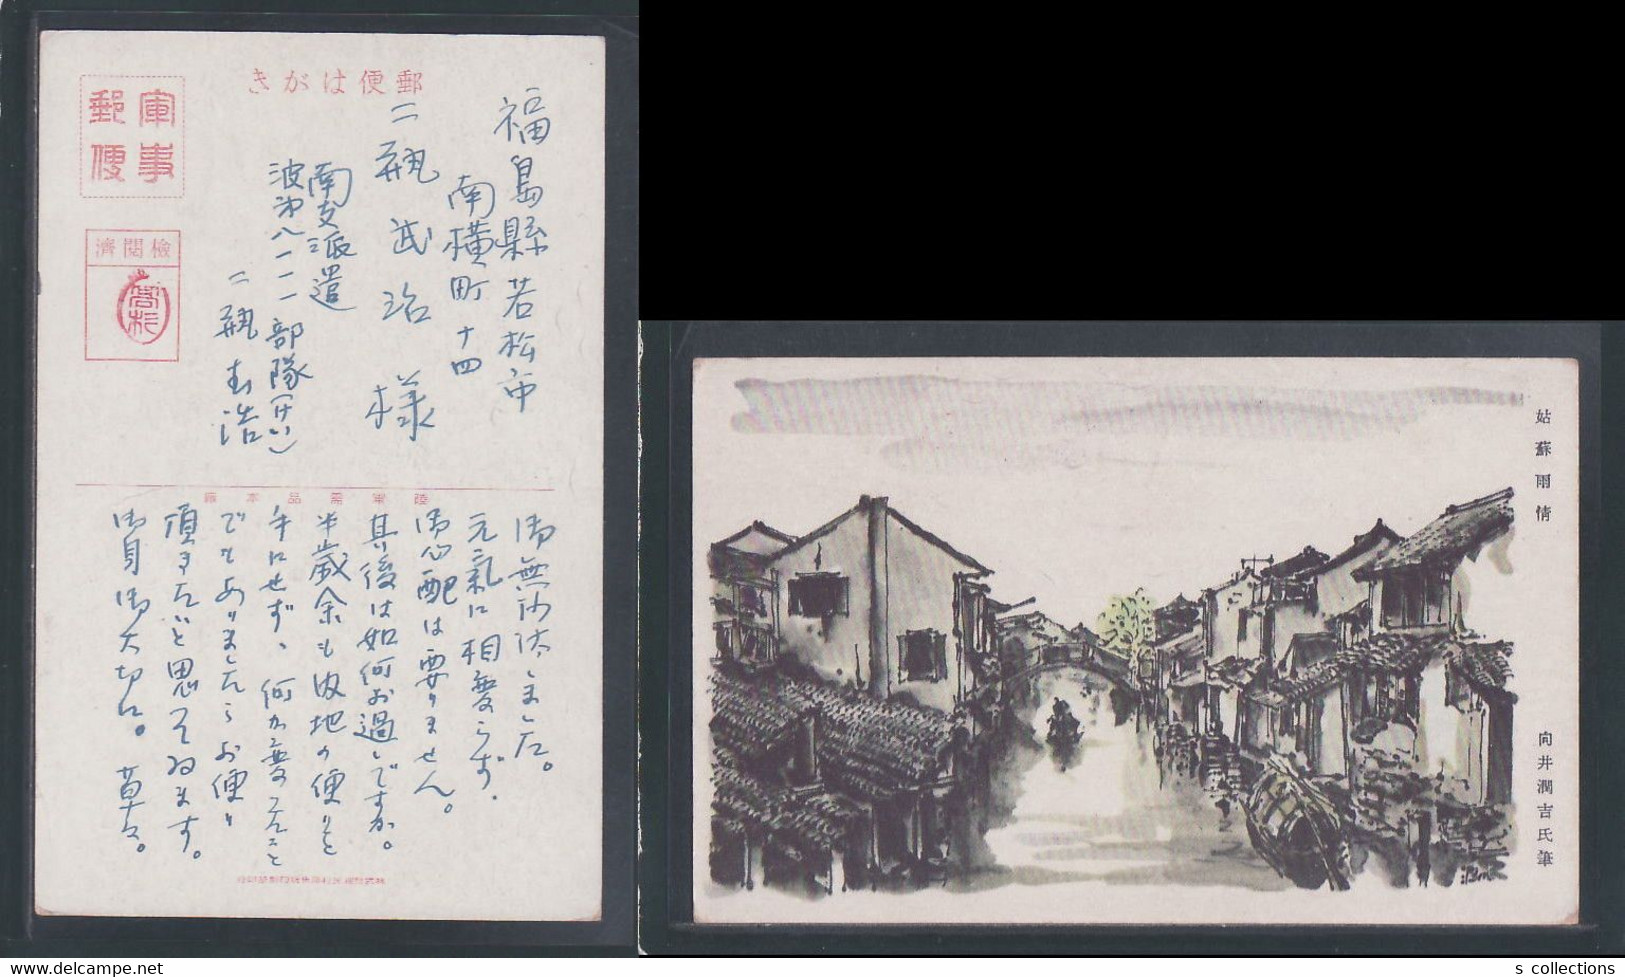 郵便はがき
軍事
郵便
檢閲濟
福島縣若松市
南横町十四
二瓶武治様
南支派遣
波第八一一一部隊(けい)
二瓶
陸軍需品本廠
御無沙汰しました。
元氣に相變らず、
御心配は要りません。
其後は如何お過しですか。
半歳余も彼地の便りを
手にせず、何か變つたこと
でもありましたらお便り
頂きたいと思つてゐます。
御身御大切に。草々。
姑蘇雨情
向井潤吉氏筆
s collections